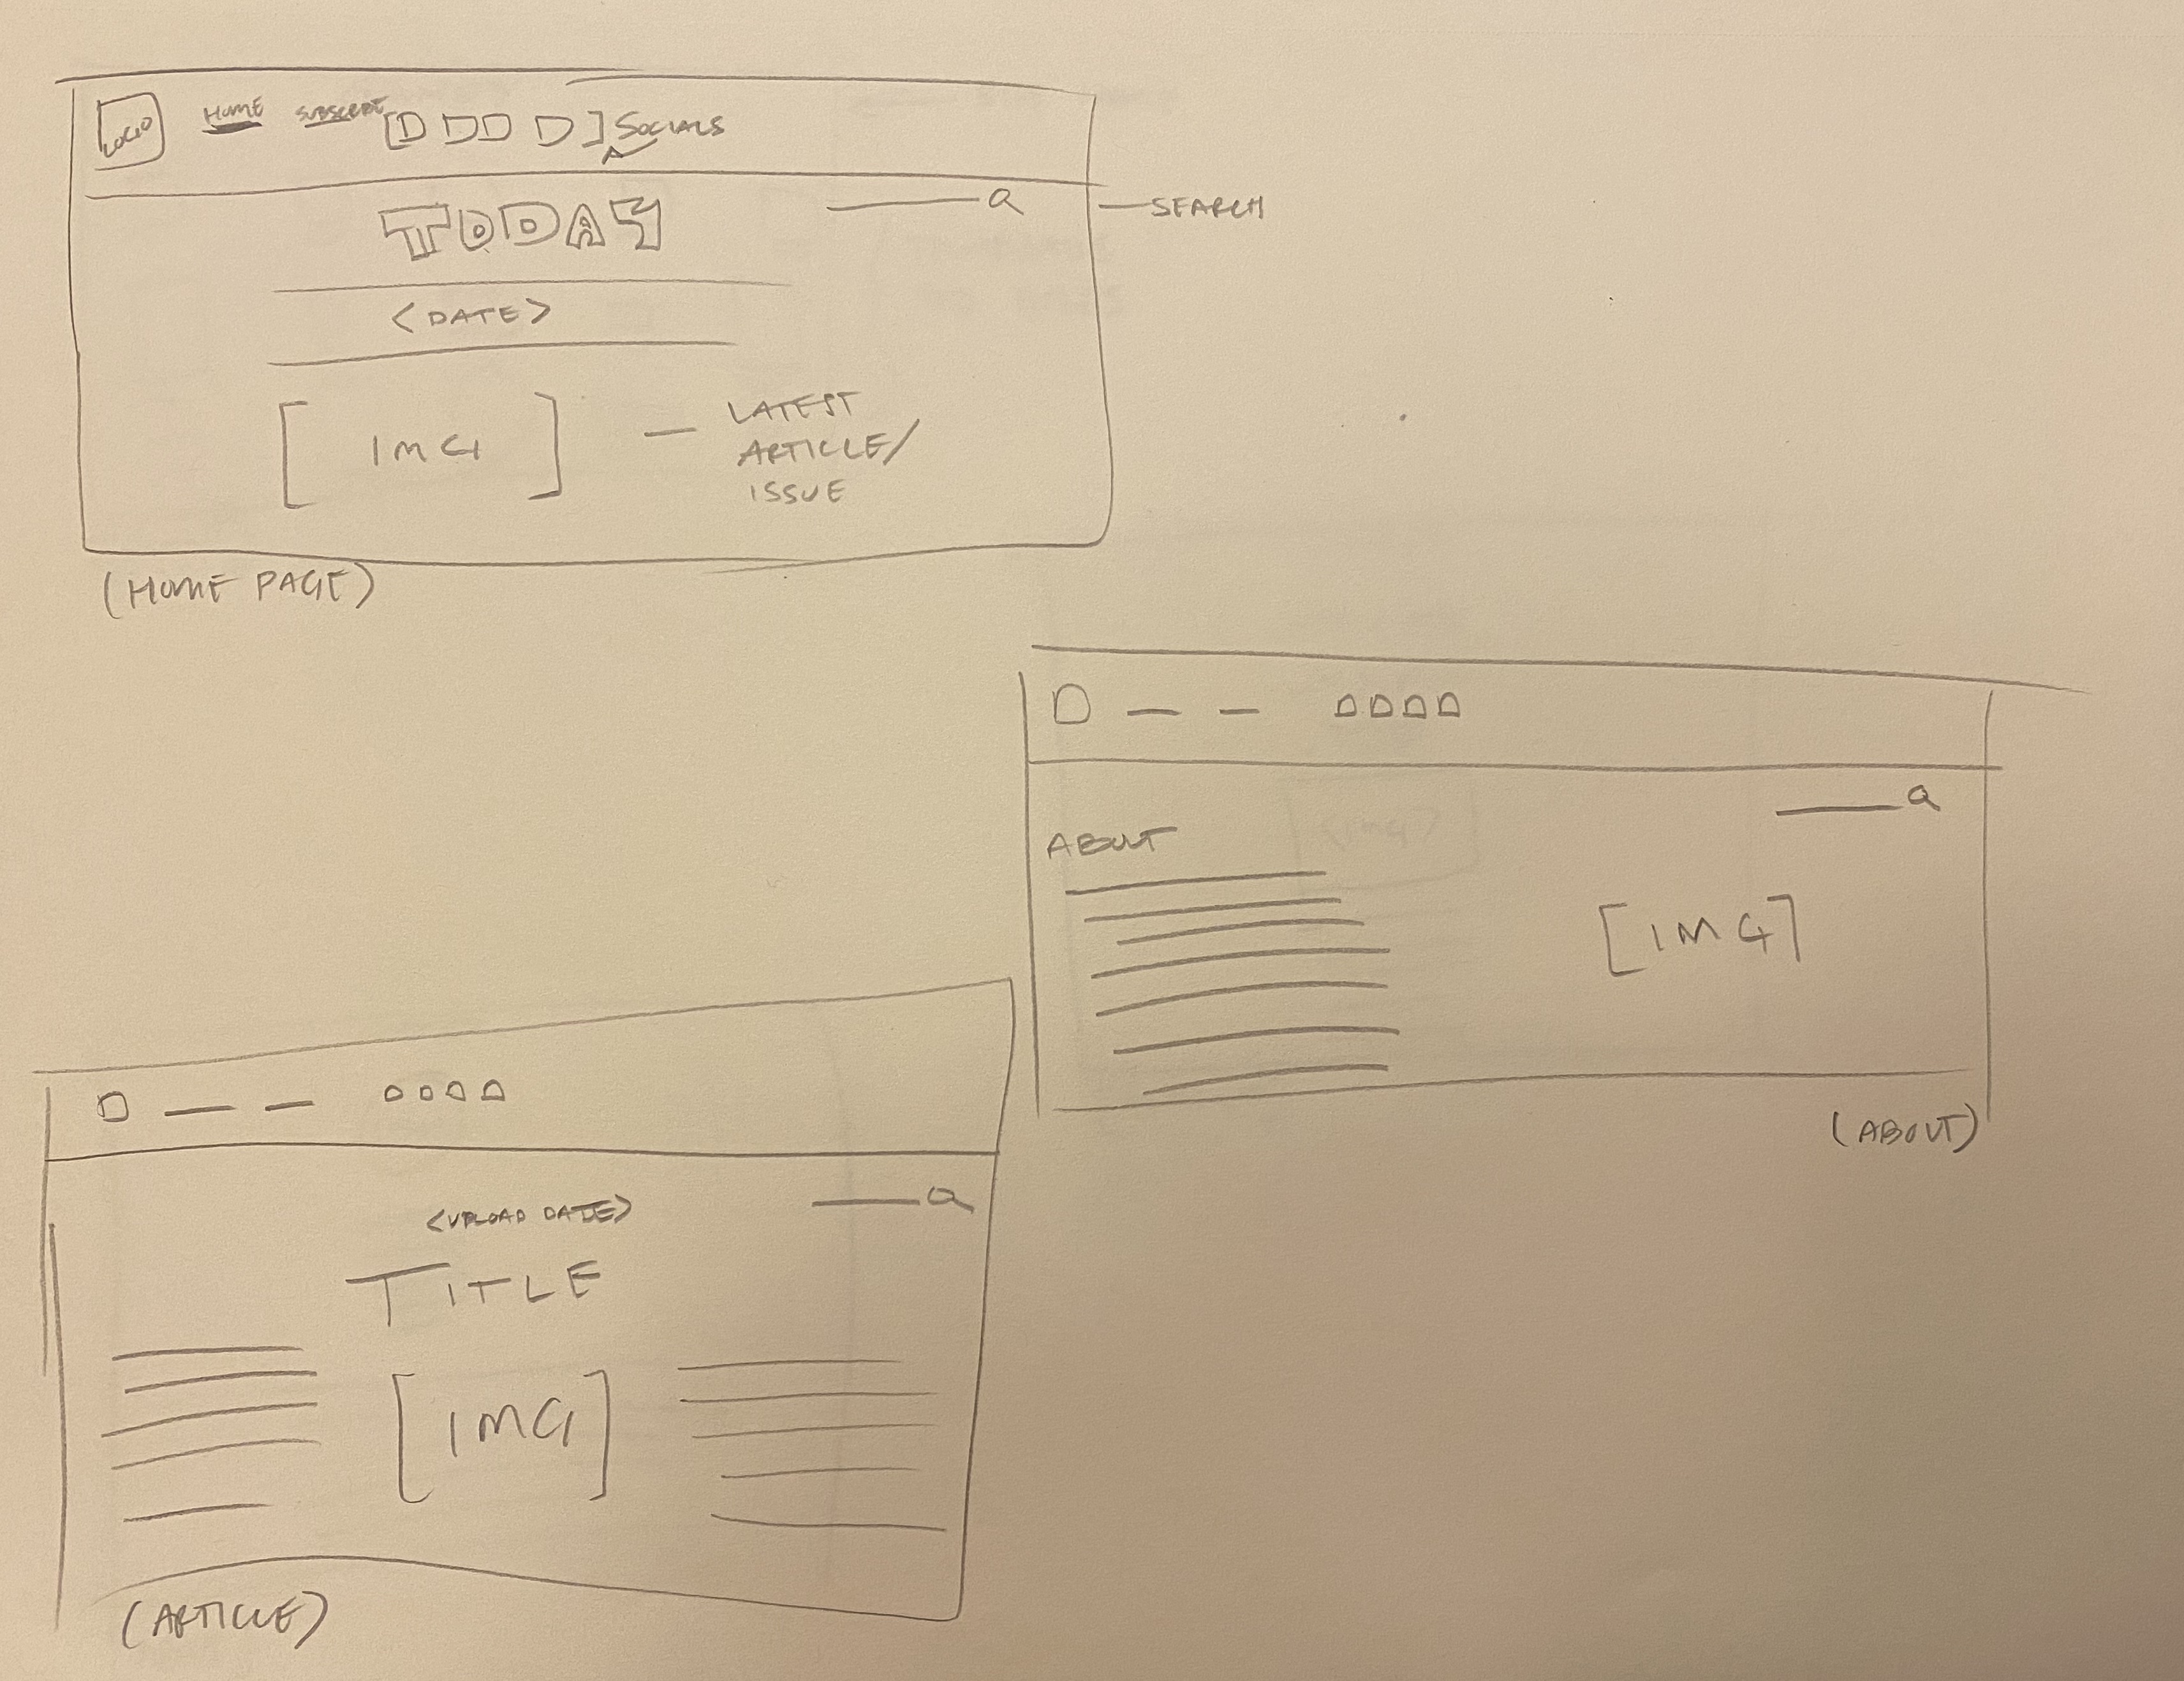 LOGO
HOME SUBSCRIBE SOCIALS
TODAY
SEARCH
<DATE>
IMG
LATEST
ARTICLE/
ISSUE
(HOME PAGE)
ABOUT
[IMG]
(ABOUT)
<UPLOAD DATE>
TITLE
[IMG]
(ARTICLE)